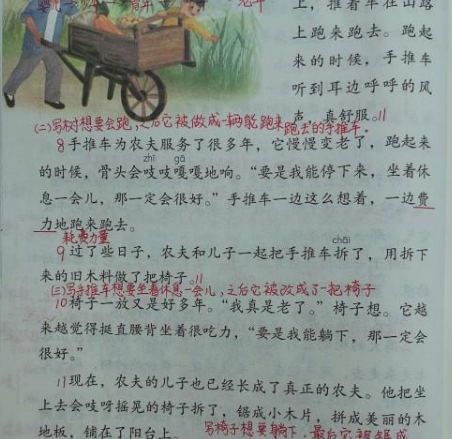 上，推着车在山路
上跑来跑去。跑起
来的时候，手推车
听到耳边呼呼的风
声，真舒服。//
(二)写树想要会跑，之后它被做成一辆能跑来跑去的手推车。
8手推车为农夫服务了很多年，它慢慢变老了，跑起来
zhī gā
的时候，骨头会吱吱嘎嘎地响。“要是我能停下来，坐着休
息一会儿，那一定会很好。”手推车一边这么想着，一边费
力地跑来跑去。
耗费力量
chāi
9过了些日子，农夫和儿子一起把手推车拆了，用拆下
来的旧木料做了把椅子。//
(三)写手推车想要坐着休息一会儿，之后它被改成了一把椅子
10椅子一放又是好多年。“我真是老了。”椅子想。它越
来越觉得挺直腰背坐着很吃力，“要是我能躺下，那一定会
很好。”
11现在，农夫的儿子也已经长成了真正的农夫。他把坐
上去会吱呀摇晃的椅子拆了，锯成小木片，拼成美丽的木
地板，铺在了阳台上。写椅子想要躺下，最后它被锯成